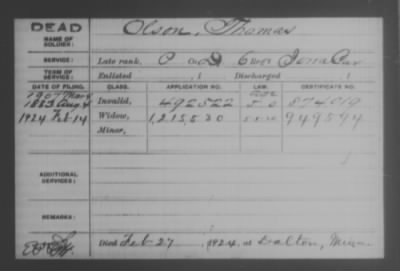 DEAD
Olson, Thomas
NAME OF SOLDIER:
SERVICE: Late rank, P Co. D, 6 Reg't Iowa Cav
TERM OF SERVICE: Enlisted , 1 Discharged , 1
DATE OF FILING. CLASS. APPLICATION NO. LAW. CERTIFICATE NO.
1883 Aug 4 Invalid, 492522 874019
1924 Feb 14 Widow, 1,215,530 949594
Minor,
ADDITIONAL SERVICES:
REMARKS:
Died Feb 27, 1924, at Dalton, Minn.